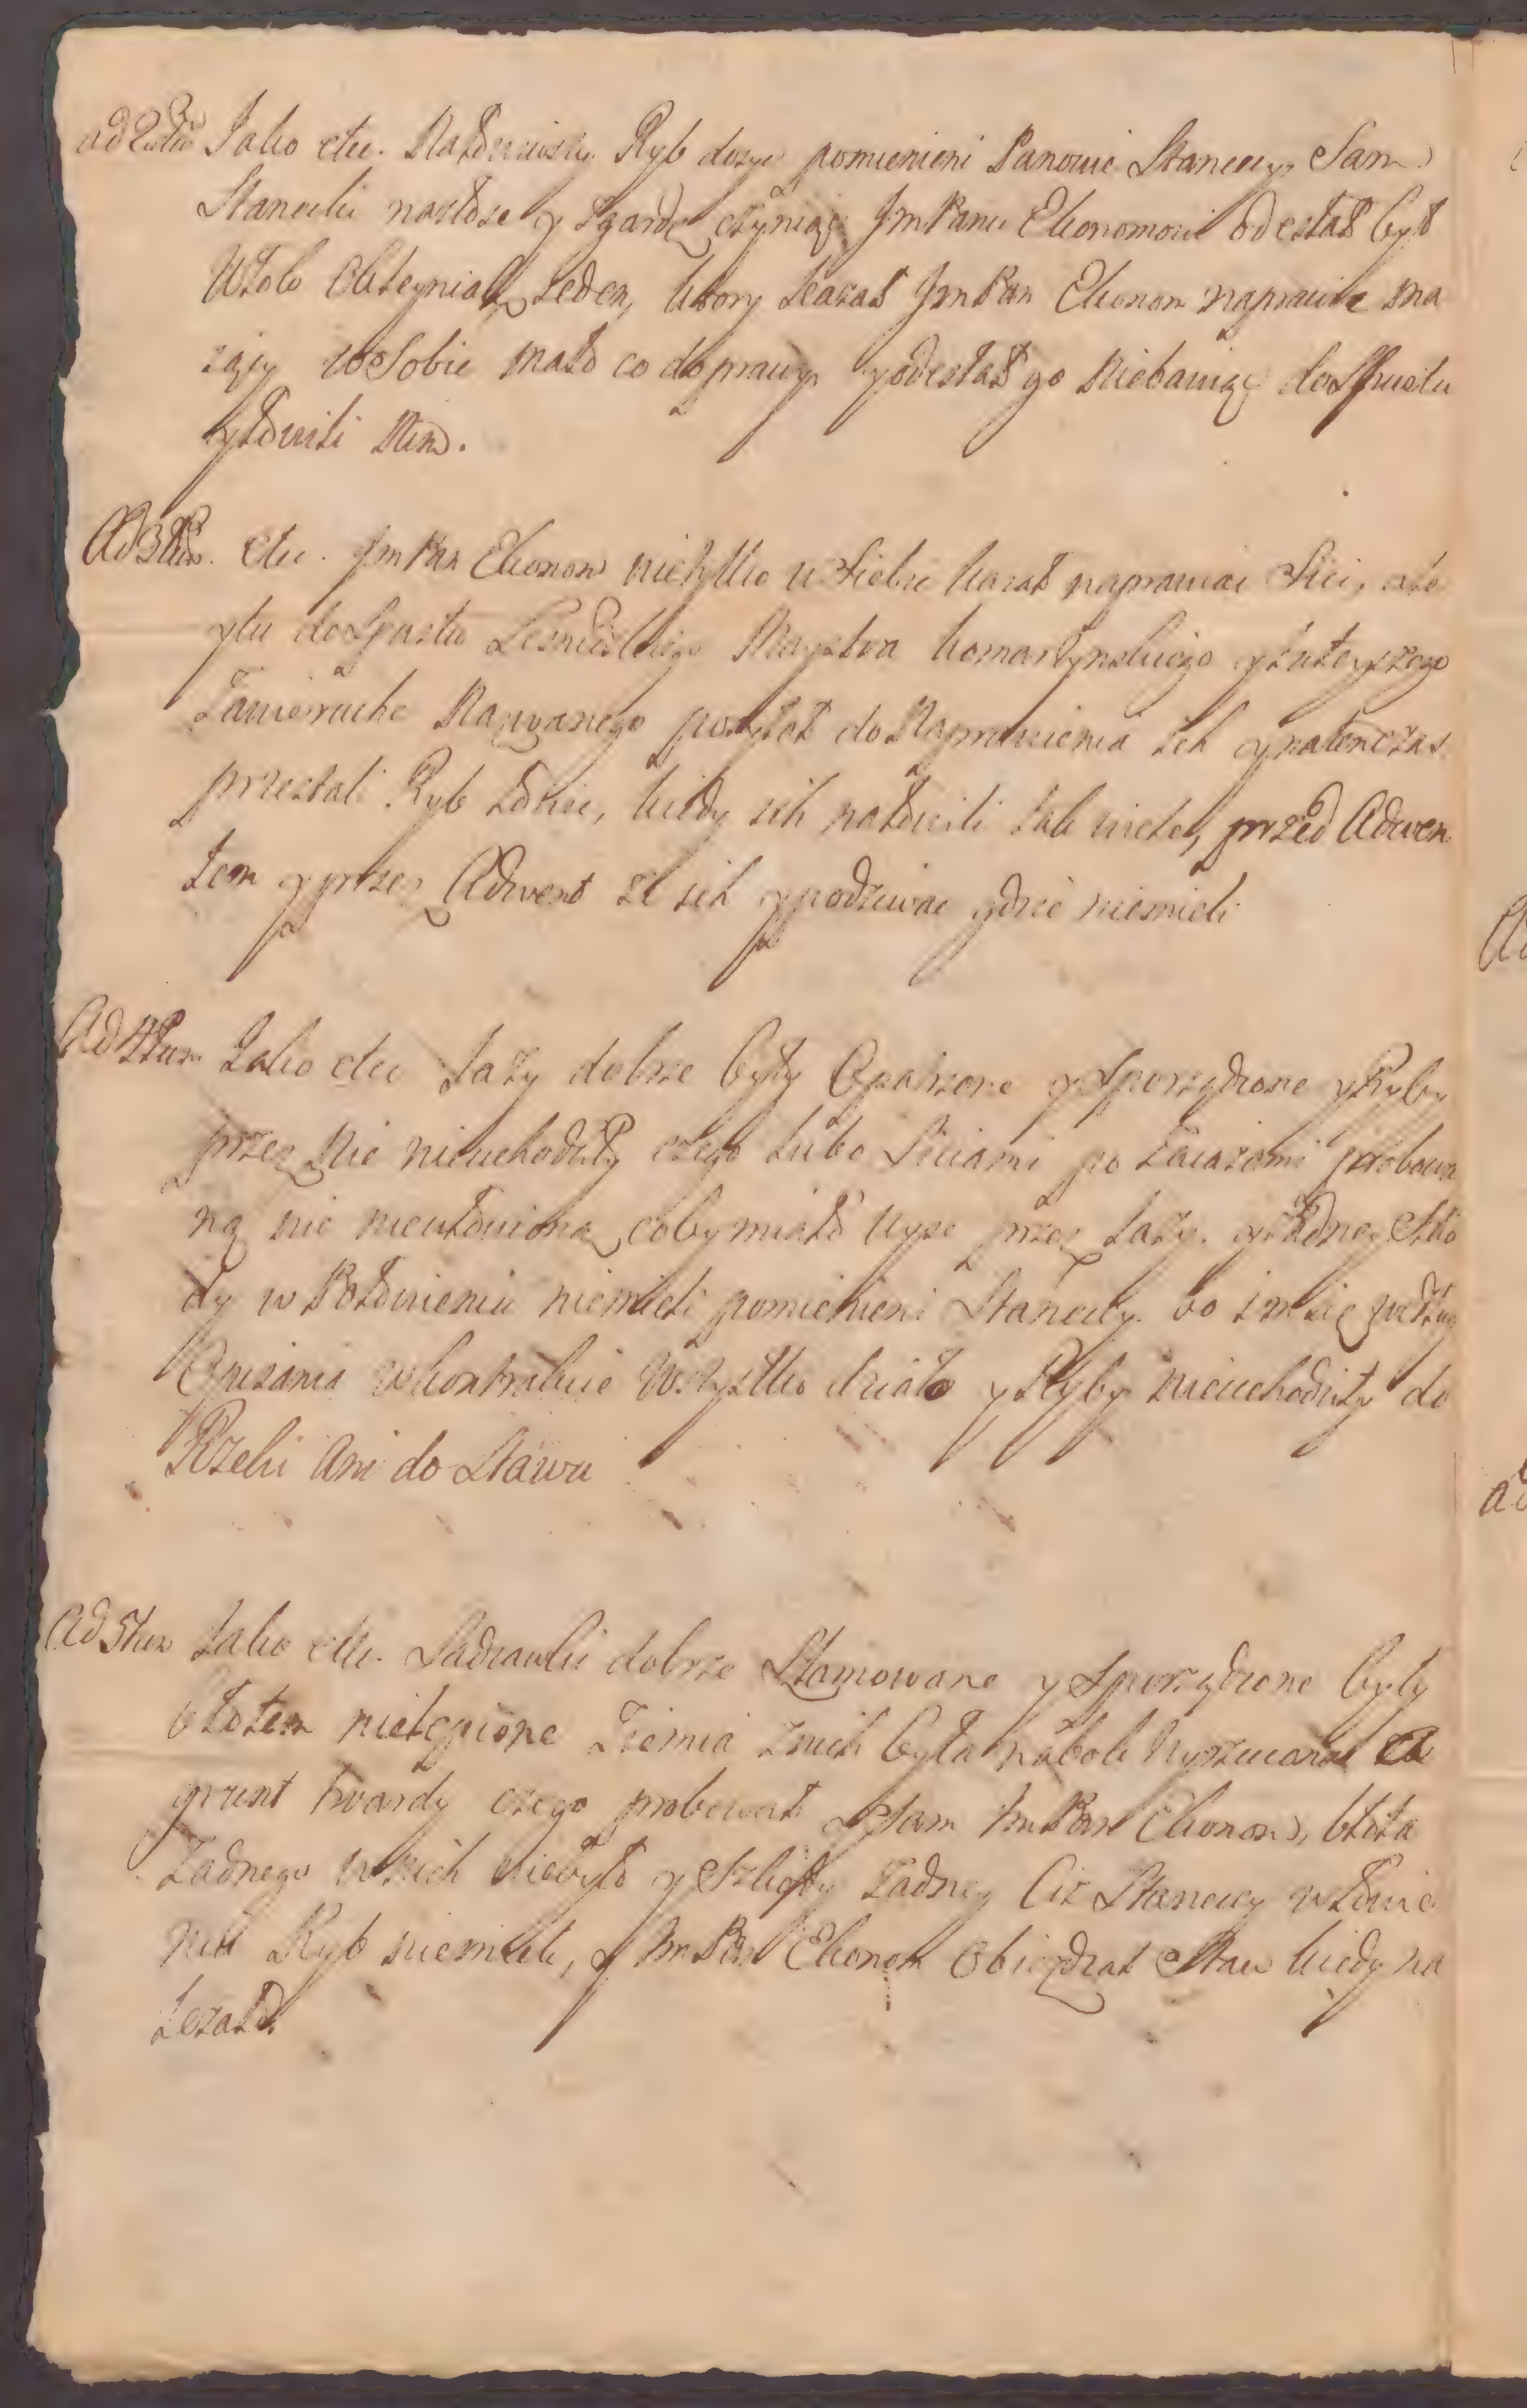 ad 2dum Jako etc. Nałowiwszy Ryb dosyc pomienieni Panowie Staneccy, Sam
Stanecki na złosc y wzgardę czyniąc JmPanu Ekonomowi odesłał był
Wtok jeden, ktory kazał JmPan Ekonom naprawic ma
iący w Sobie mało co do prawy y odesłał go niebawiąc do Spustu
y łowili nim.
Ad 3tium etc. JmPan Ekonom nietylko u Siebie kazał naprawiac Sieci, ale
y tu do Spustu Maystra komarzynskiego y tuteyszego
Zawieruche Nazwanego posyłał do Naprawienia ich y natenczas
przestali Ryb łowic, kiedy ich nałowili tak wiele, przed Adwen
tem y przez Adwent ze ich y podziwac gdzie niemieli
Ad 4tum Jako etc Jazy dobrze były Opatrzone y Sporządzone y Ryby
przez nie nieuchodziły czego lubo Sieciami po za iazami probowa
no nic nieułowiono coby miało uysc przez Jazy. y żadney szko
dy w Połowieniu niemieli pomienieni Staneccy. bo im się podług
Opisania w kontrakcie Wszystko działo y Ryby nieuchodziły do
Rzeki Ani do Stawu
Ad 5tum Jako etc. Sadzawki dobrze Sztamowane y Sporządzone były
błotem nielepione Ziemia z nich była na bok wyrzucana
grunt twardy czego probował y Sam JmPan Ekonom, błota
żadnego w nich niebyło y Szkody żadney Ciż Staneccy w łowie
niu Ryb niemieli, y JmPan Ekonom obieżdzał Staw kiedy na
leżało.